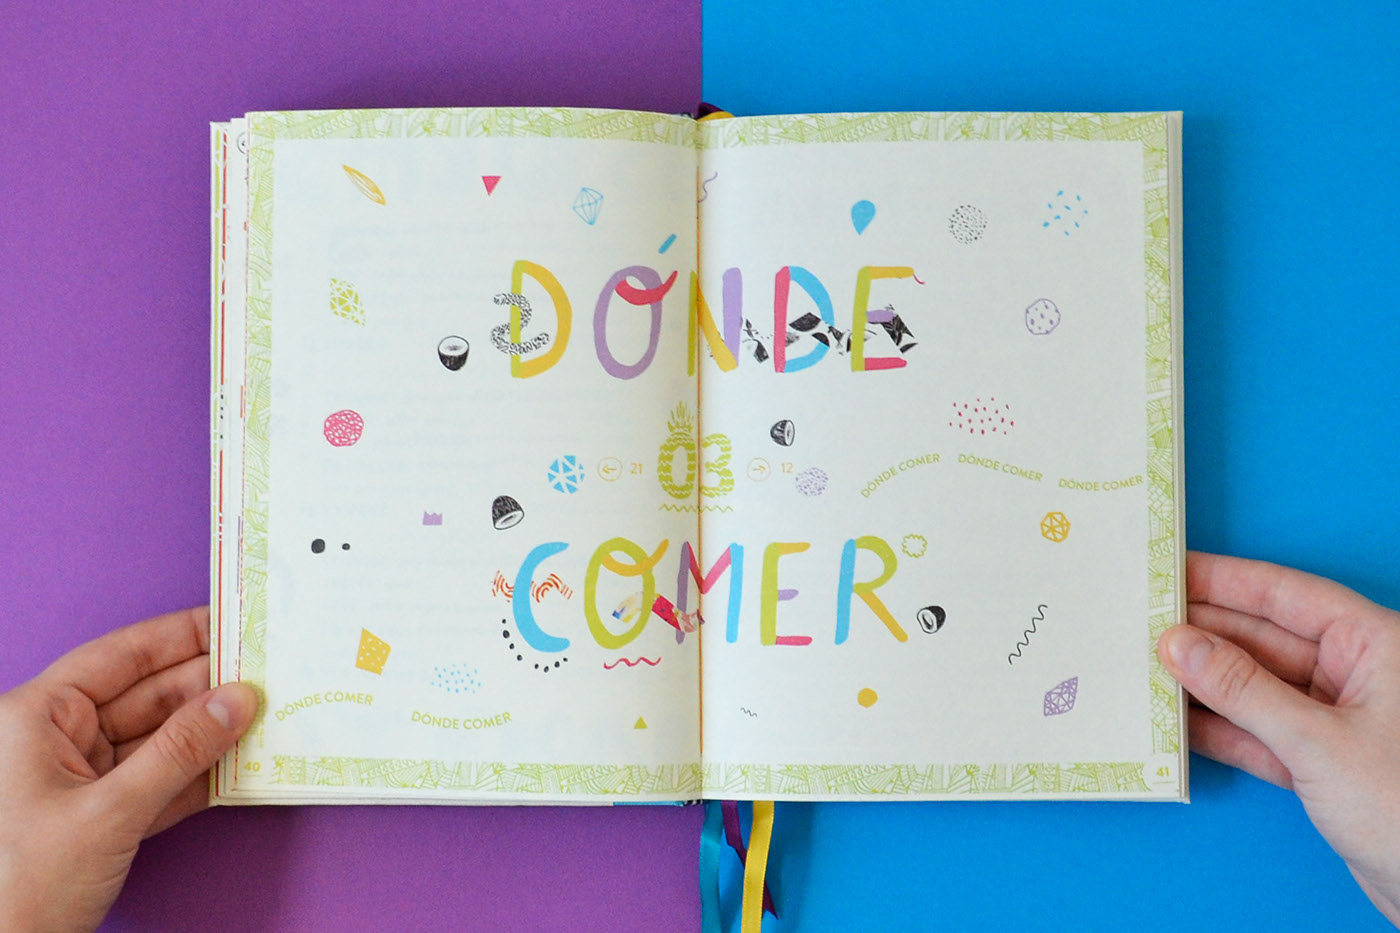 DÓNDE
21 03 12
DÓNDE COMER DÓNDE COMER DÓNDE COMER
COMER
DÓNDE COMER DÓNDE COMER
40
41